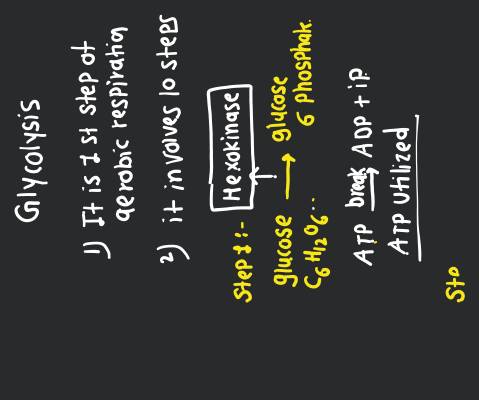 Glycolysis
1) It is 1 st step of
aerobic respiration
2) it involves 10 steps
Step 1 :- Hexokinase
glucose → glucose
C6H12O6.. 6 phosphate.
ATP break → ADP + iP
ATP utilized
Ste